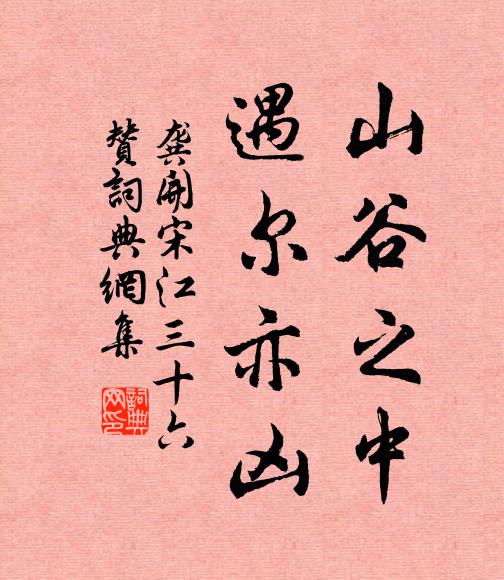 山谷之中
遇尔亦凶
龚開宋江三十六
赞詞典網集
詞典
网印